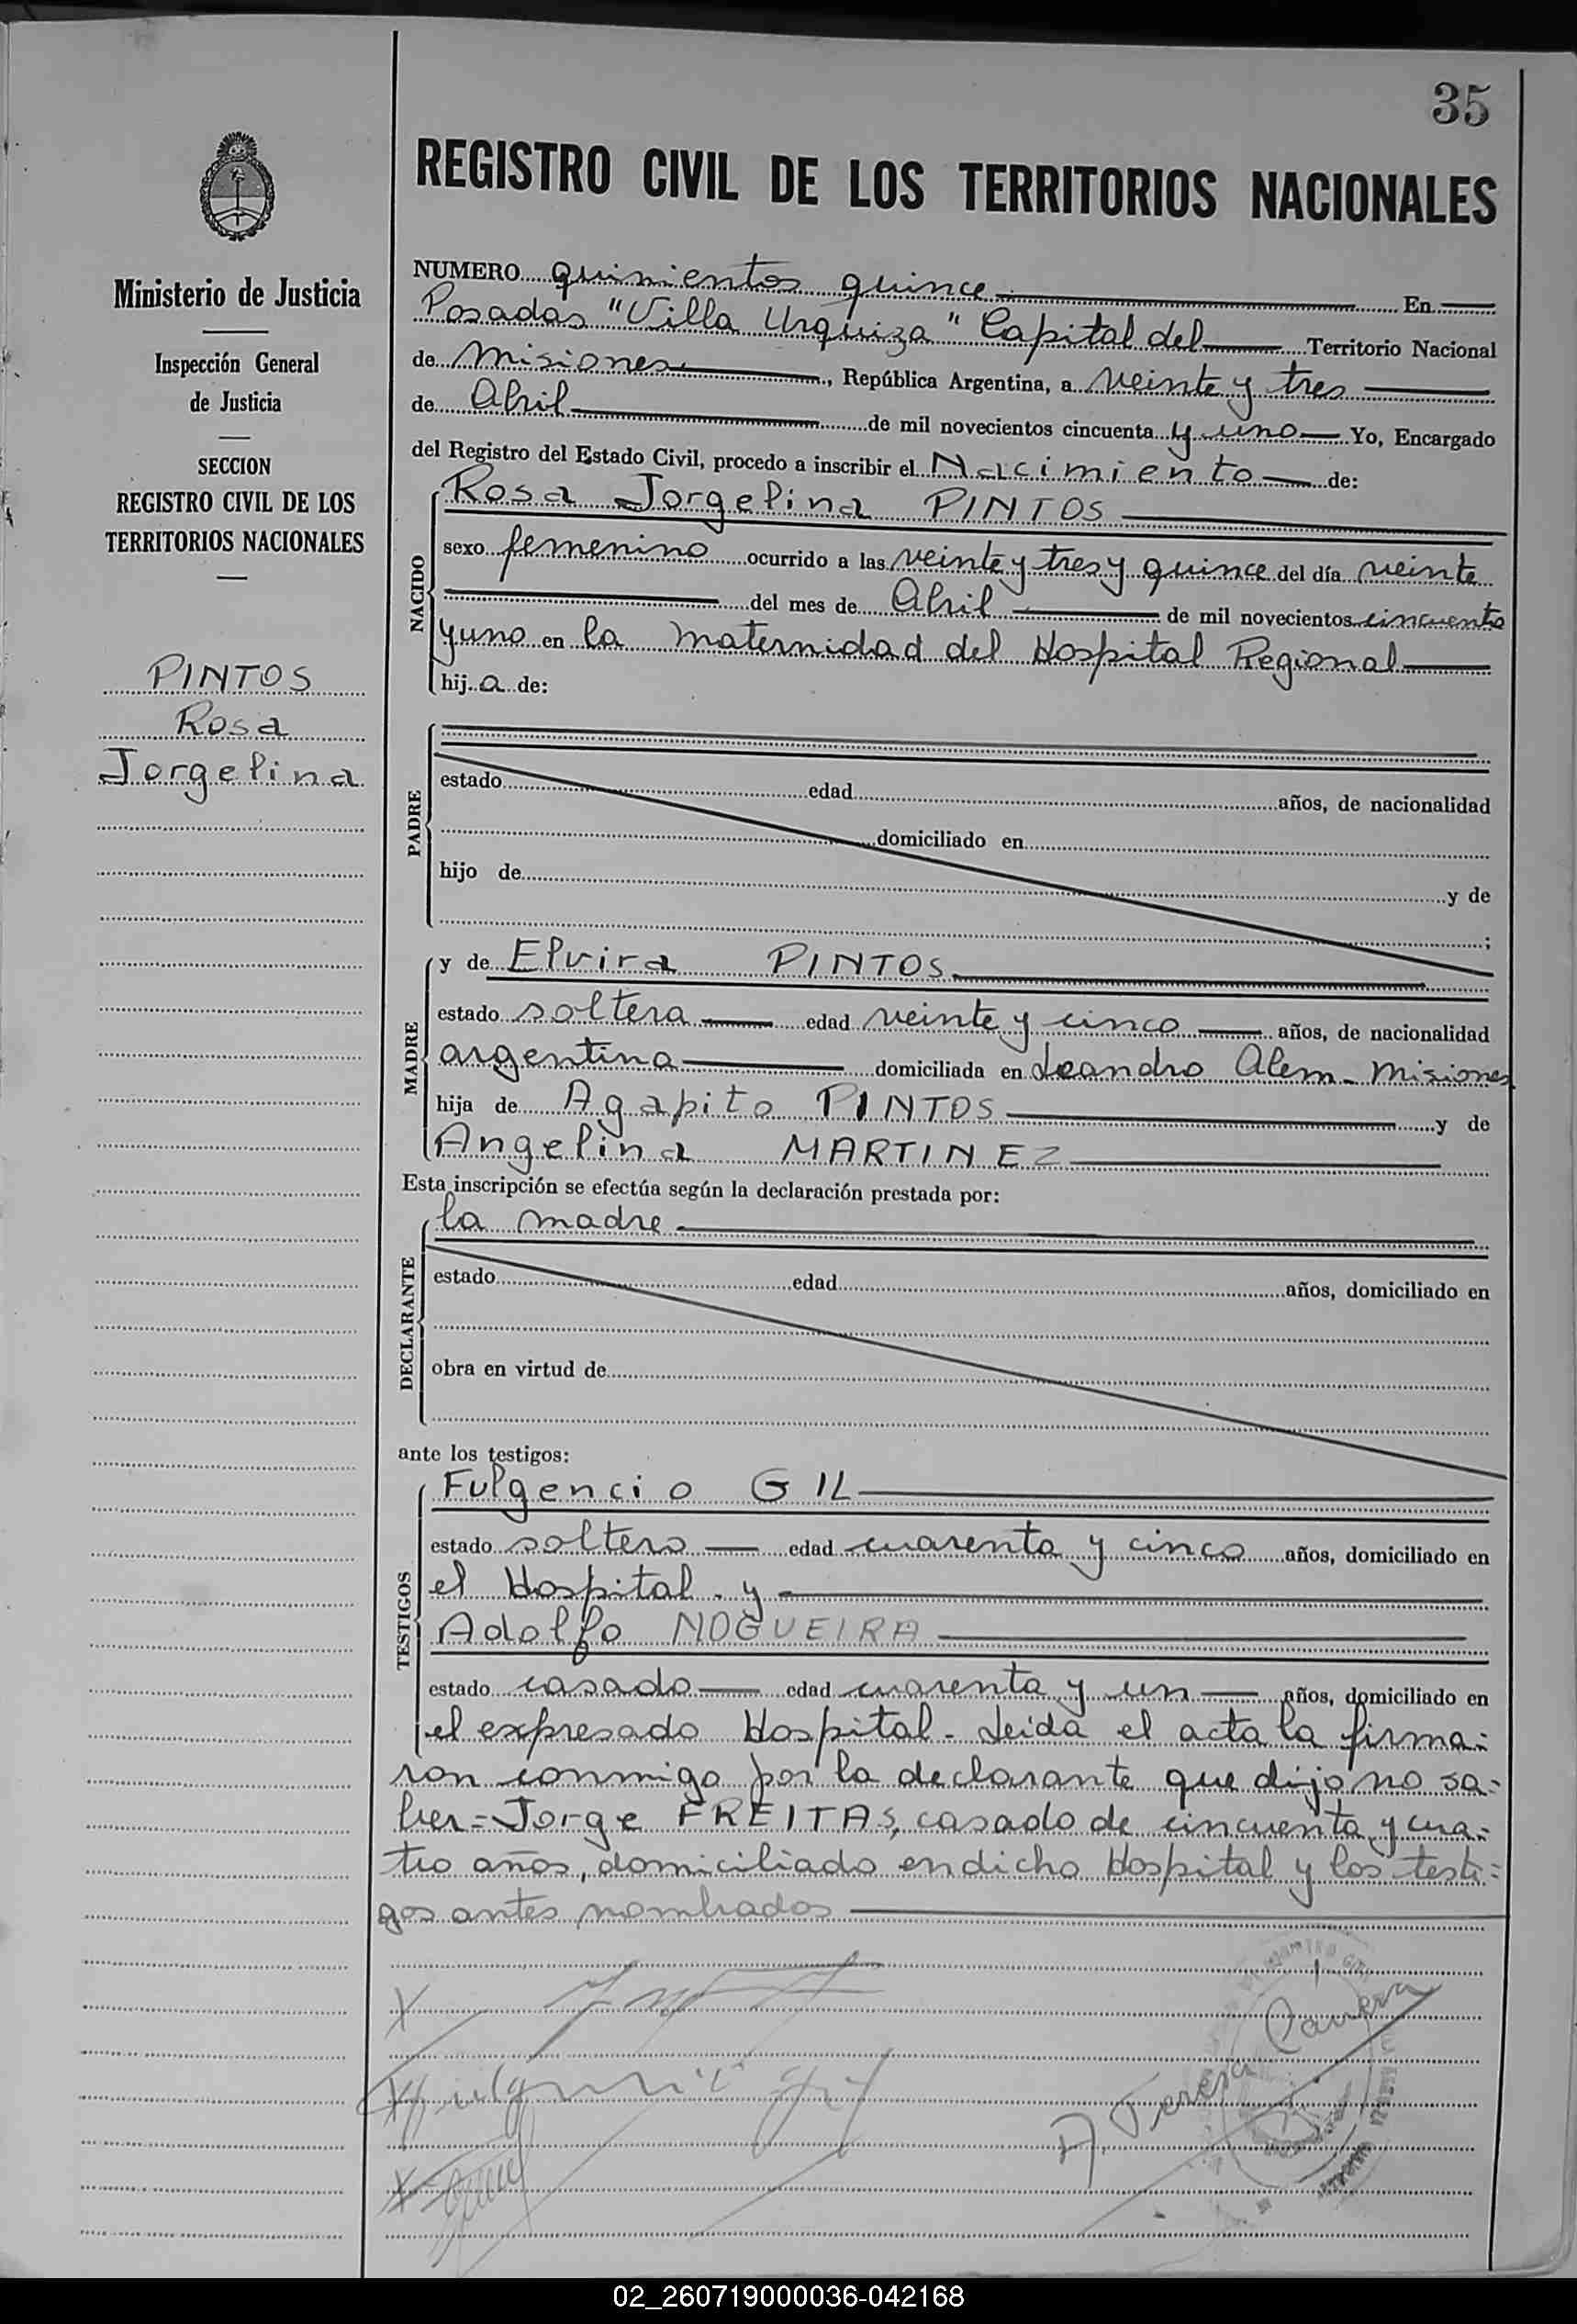 35
REGISTRO CIVIL DE LOS TERRITORIOS NACIONALES
Ministerio de Justicia
Inspección General
de Justicia
SECCION
REGISTRO CIVIL DE LOS
TERRITORIOS NACIONALES
PINTOS
Rosa
Jorgelina
NUMERO quinientos quince En
Posadas "Villa Urquiza" Capital del Territorio Nacional
de Misiones, República Argentina, a veinte y tres
de Abril de mil novecientos cincuenta y uno Yo, Encargado
del Registro del Estado Civil, procedo a inscribir el Nacimiento de:
NACIDO
Rosa Jorgelina PINTOS
sexo femenino ocurrido a las veinte y tres y quince del día veinte
del mes de Abril de mil novecientos cincuenta
y uno en la maternidad del Hospital Regional
hij a de:
PADRE
estado edad años, de nacionalidad
domiciliado en
hijo de y de
;
MADRE
y de Elvira PINTOS
estado soltera edad veinte y cinco años, de nacionalidad
argentina domiciliada en Leandro Alem - Misiones
hija de Agapito PINTOS y de
Angelina MARTINEZ
Esta inscripción se efectúa según la declaración prestada por:
DECLARANTE
la madre
estado edad años, domiciliado en
obra en virtud de
ante los testigos:
TESTIGOS
Fulgencio GIL
estado soltero edad cuarenta y cinco años, domiciliado en
el Hospital - y
Adolfo NOGUEIRA
estado casado edad cuarenta y un años, domiciliado en
el expresado Hospital - Leida el acta la firma=
ron conmigo por la declarante que dijo no sa=
ber = Jorge FREITAS, casado de cincuenta y cua=
tro años, domiciliado en dicho Hospital y los testi=
gos antes nombrados
A. Teresa Carrera
02_260719000036-042168